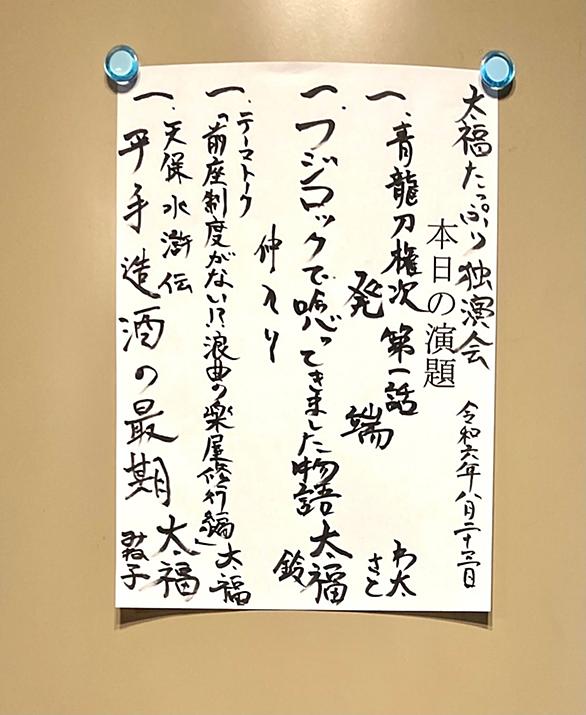 太福たっぷり独演会
令和六年八月二十三日
本日の演題
一、青龍刀権次 第一話
発端
わ太
さと
一、フジロックで唸ってきました物語 太福
鈴
仲入り
一、テーマトーク
「前座制度がない!?浪曲の楽屋修行編」太福
一、天保水滸伝
平手造酒の最期 太福
みね子